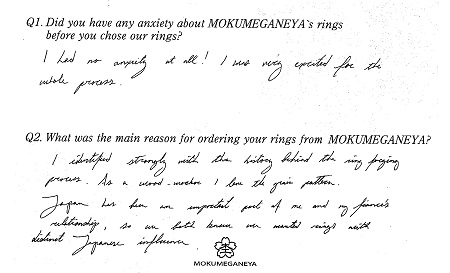 Q1. Did you have any anxiety about MOKUMEGANEYA's rings
before you chose our rings?
I had no anxiety at all! I was very excited for the
whole process.
Q2. What was the main reason for ordering your rings from MOKUMEGANEYA?
I identified strongly with the history behind the ring forging
process. As a wood-worker I love the grain pattern.
Japan has been an important part of me and my fiance's
relationship, so we both knew we wanted rings with
distinct Japanese influence.
MOKUMEGANEYA